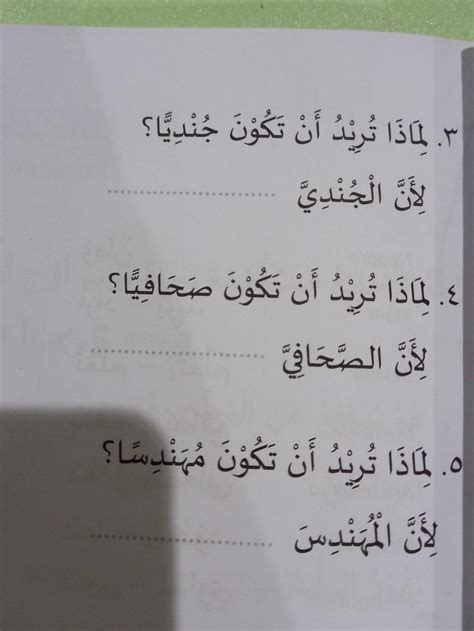 ٣. لِمَاذَا تُرِيْدُ أَنْ تَكُوْنَ جُنْدِيًّا؟
لِأَنَّ الْجُنْدِيَّ ........................
٤. لِمَاذَا تُرِيْدُ أَنْ تَكُوْنَ صَحَافِيًّا؟
لِأَنَّ الصَّحَافِيَّ ........................
٥. لِمَاذَا تُرِيْدُ أَنْ تَكُوْنَ مُهَنْدِسًا؟
لِأَنَّ الْمُهَنْدِسَ ........................